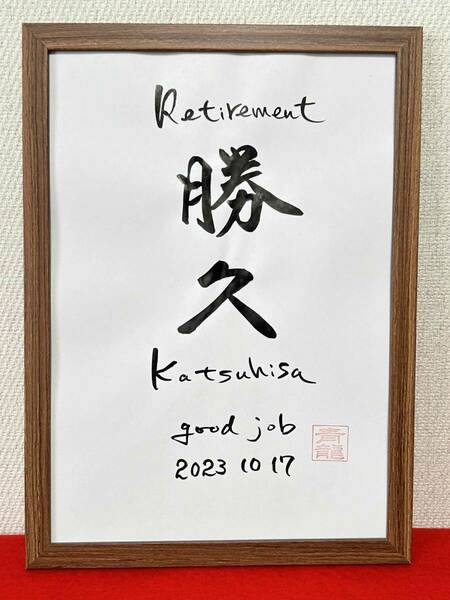 Retirement
勝
久
Katsuhisa
good job
2023 10 17
青
龍